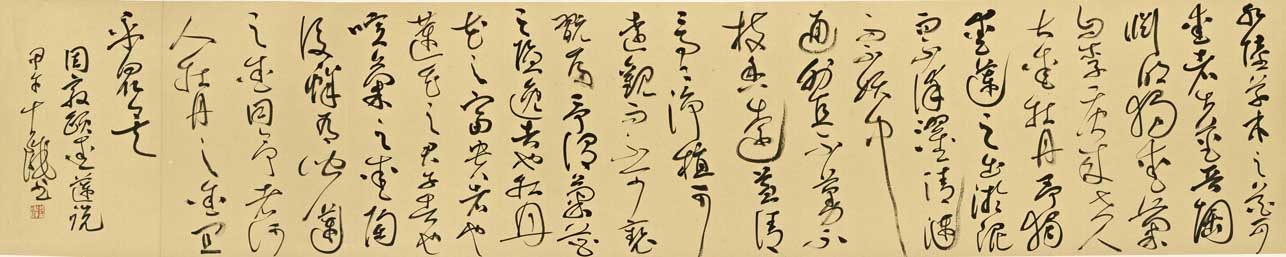 水陸草木之花可
愛者甚蕃晉陶
淵明獨愛菊
自李唐來世人
大愛牡丹予獨
愛蓮之出淤泥
而不染濯清漣
而不妖中
通外直不蔓不
枝香遠益清
亭亭淨植可
遠觀而不可褻
翫焉予謂菊花
之隱逸者也牡丹
花之富貴者也
蓮花之君子者也
噫菊之愛陶
後鮮有聞蓮
之愛同予者何
人牡丹之愛宜
乎眾矣
周敦頤愛蓮說
甲午十書